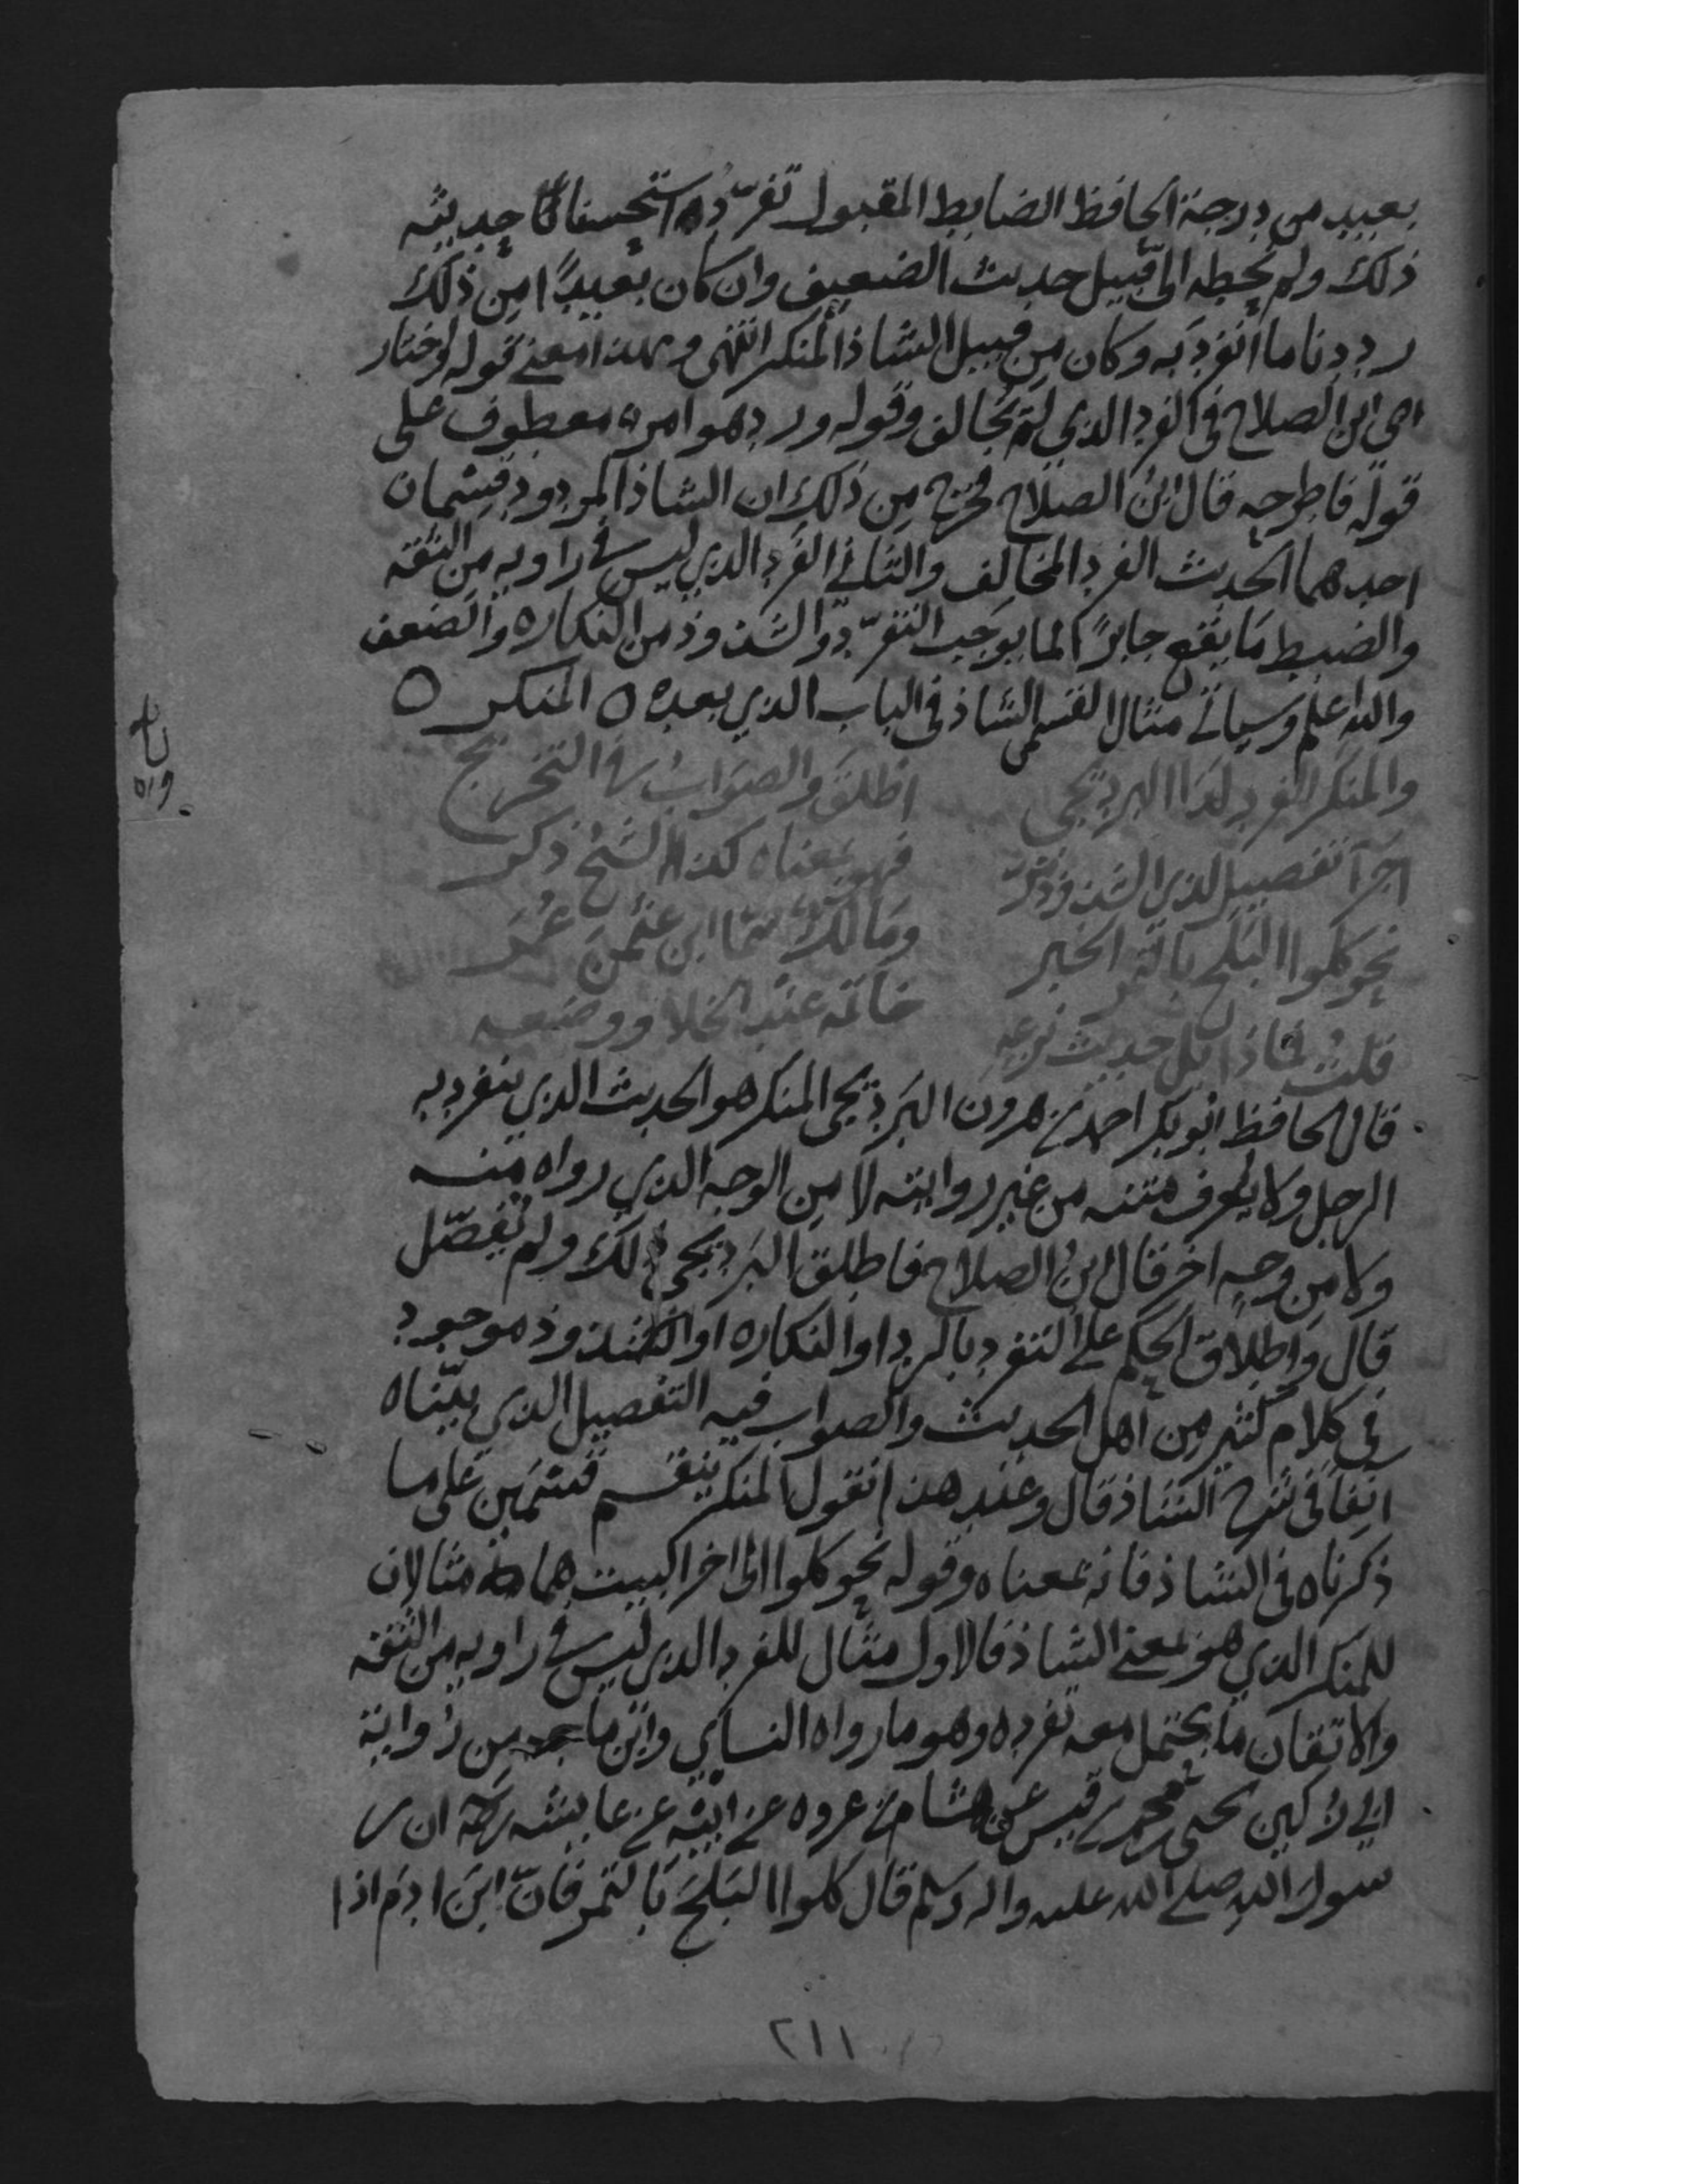 بعيد من درجة الحافظ الضابط المقبول تفرّده استحسنا حديثه
ذلك ولم نحطه الى قبيل حديث الضعيف وان كان بعيدًا من ذلك
رددنا ما انفرد به وكان من قبيل الشاذ المنكر انتهى وهذا معنى قوله واختار
اى ابن الصلاح فى الفرد الذي لم يخالف وقوله ورد هو امر معطوف على
قوله فاطرحه قال ابن الصلاح فخرج من ذلك ان الشاذ المردود قسمان
احدهما الحديث الفرد المخالف والثاني الفرد الذي ليس في راويه من الثقة
والضبط ما يقع جابرًا لما يوجب التفرّد والشذوذ من النكاره والضعف
والله اعلم وسياتي مثال لقسمى الشاذ فى الباب الذي بعده ٥ المنكر ٥
والمنكر الفرد كذا البرديجى اطلق والصواب في التخريج
اجرآ تفصيل لدى الشذوذ مرّ فهو بمعناه كذا الشيخ ذكر
نحو كلوا البلح بالتمر الخبر ومالك سمّا ابن عثمن عُمَر
قلت فماذا بل حديث نزعه خاتمه عند الخلا ووضعه
قال الحافظ ابو بكر احمد بن هرون البرديجى المنكر هو الحديث الذي ينفرد به
الرجل ولا يعرف متنه من غير روايته لا من الوجه الذي رواه منه
ولا من وجه اخر قال ابن الصلاح فاطلق البرديجى ذلك ولم يفصّل
قال واطلاق الحكم على التفرد بالرد او النكاره او الشذوذ موجود
فى كلام كثير من اهل الحديث والصواب فيه التفصيل الذي بيّناه
انفا فى شرح الشاذ قال وعند هذا نقول المنكر ينقسم قسمين على ما
ذكرناه فى الشاذ فانه بمعناه وقوله نحو كلوا الى اخر البيت هما مثالان
للمنكر الذي هو بمعنى الشاذ فالاول مثال للفرد الذي ليس في راويه من الثقه
والاتقان ما يحتمل معه تفرده وهو ما رواه النساي وابن ماجه من رواية
ابي زكير يحيى بن محمد بن قيس عن هشام بن عروه عن ابيه عن عايشه ان ر
سول الله صلى الله عليه واله وسلم قال كلوا البلح بالتمر فانّ ابن ادم اذا
٢١١